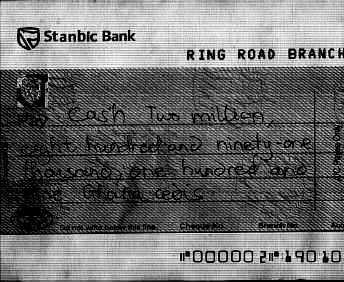 Stanbic Bank
RING ROAD BRANCH
Pay Cash Two million,
eight hundred and ninety-one
thousand, one hundred and
Ghana cedis
Do not write below this line. Cheque No.
⑈000002⑈190101